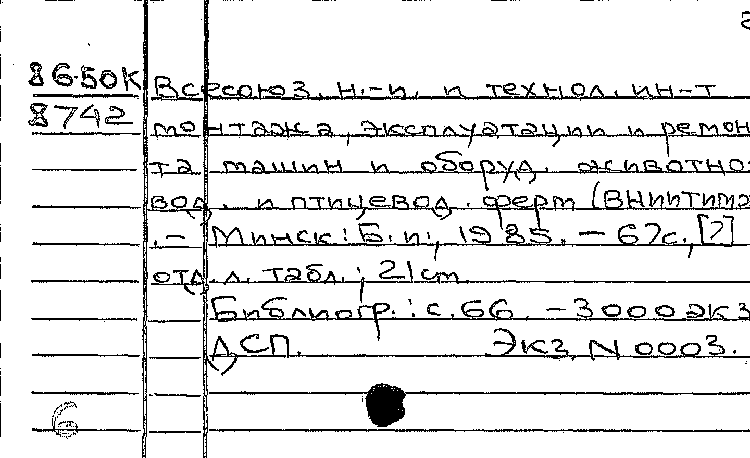 86.50К Всесоюз. н.-и. и технол. ин-т
8742 монтажа, эксплуатации и ремон
та машин и оборуд. животно
вод. и птицевод. ферм (ВНИИТИМ
.- Минск: Б. и., 1985. - 67с., [7]
отд. л. табл.; 21 cm.
Библиогр.: с. 66. - 3000 экз
ДСП. Экз. N 0003.
6